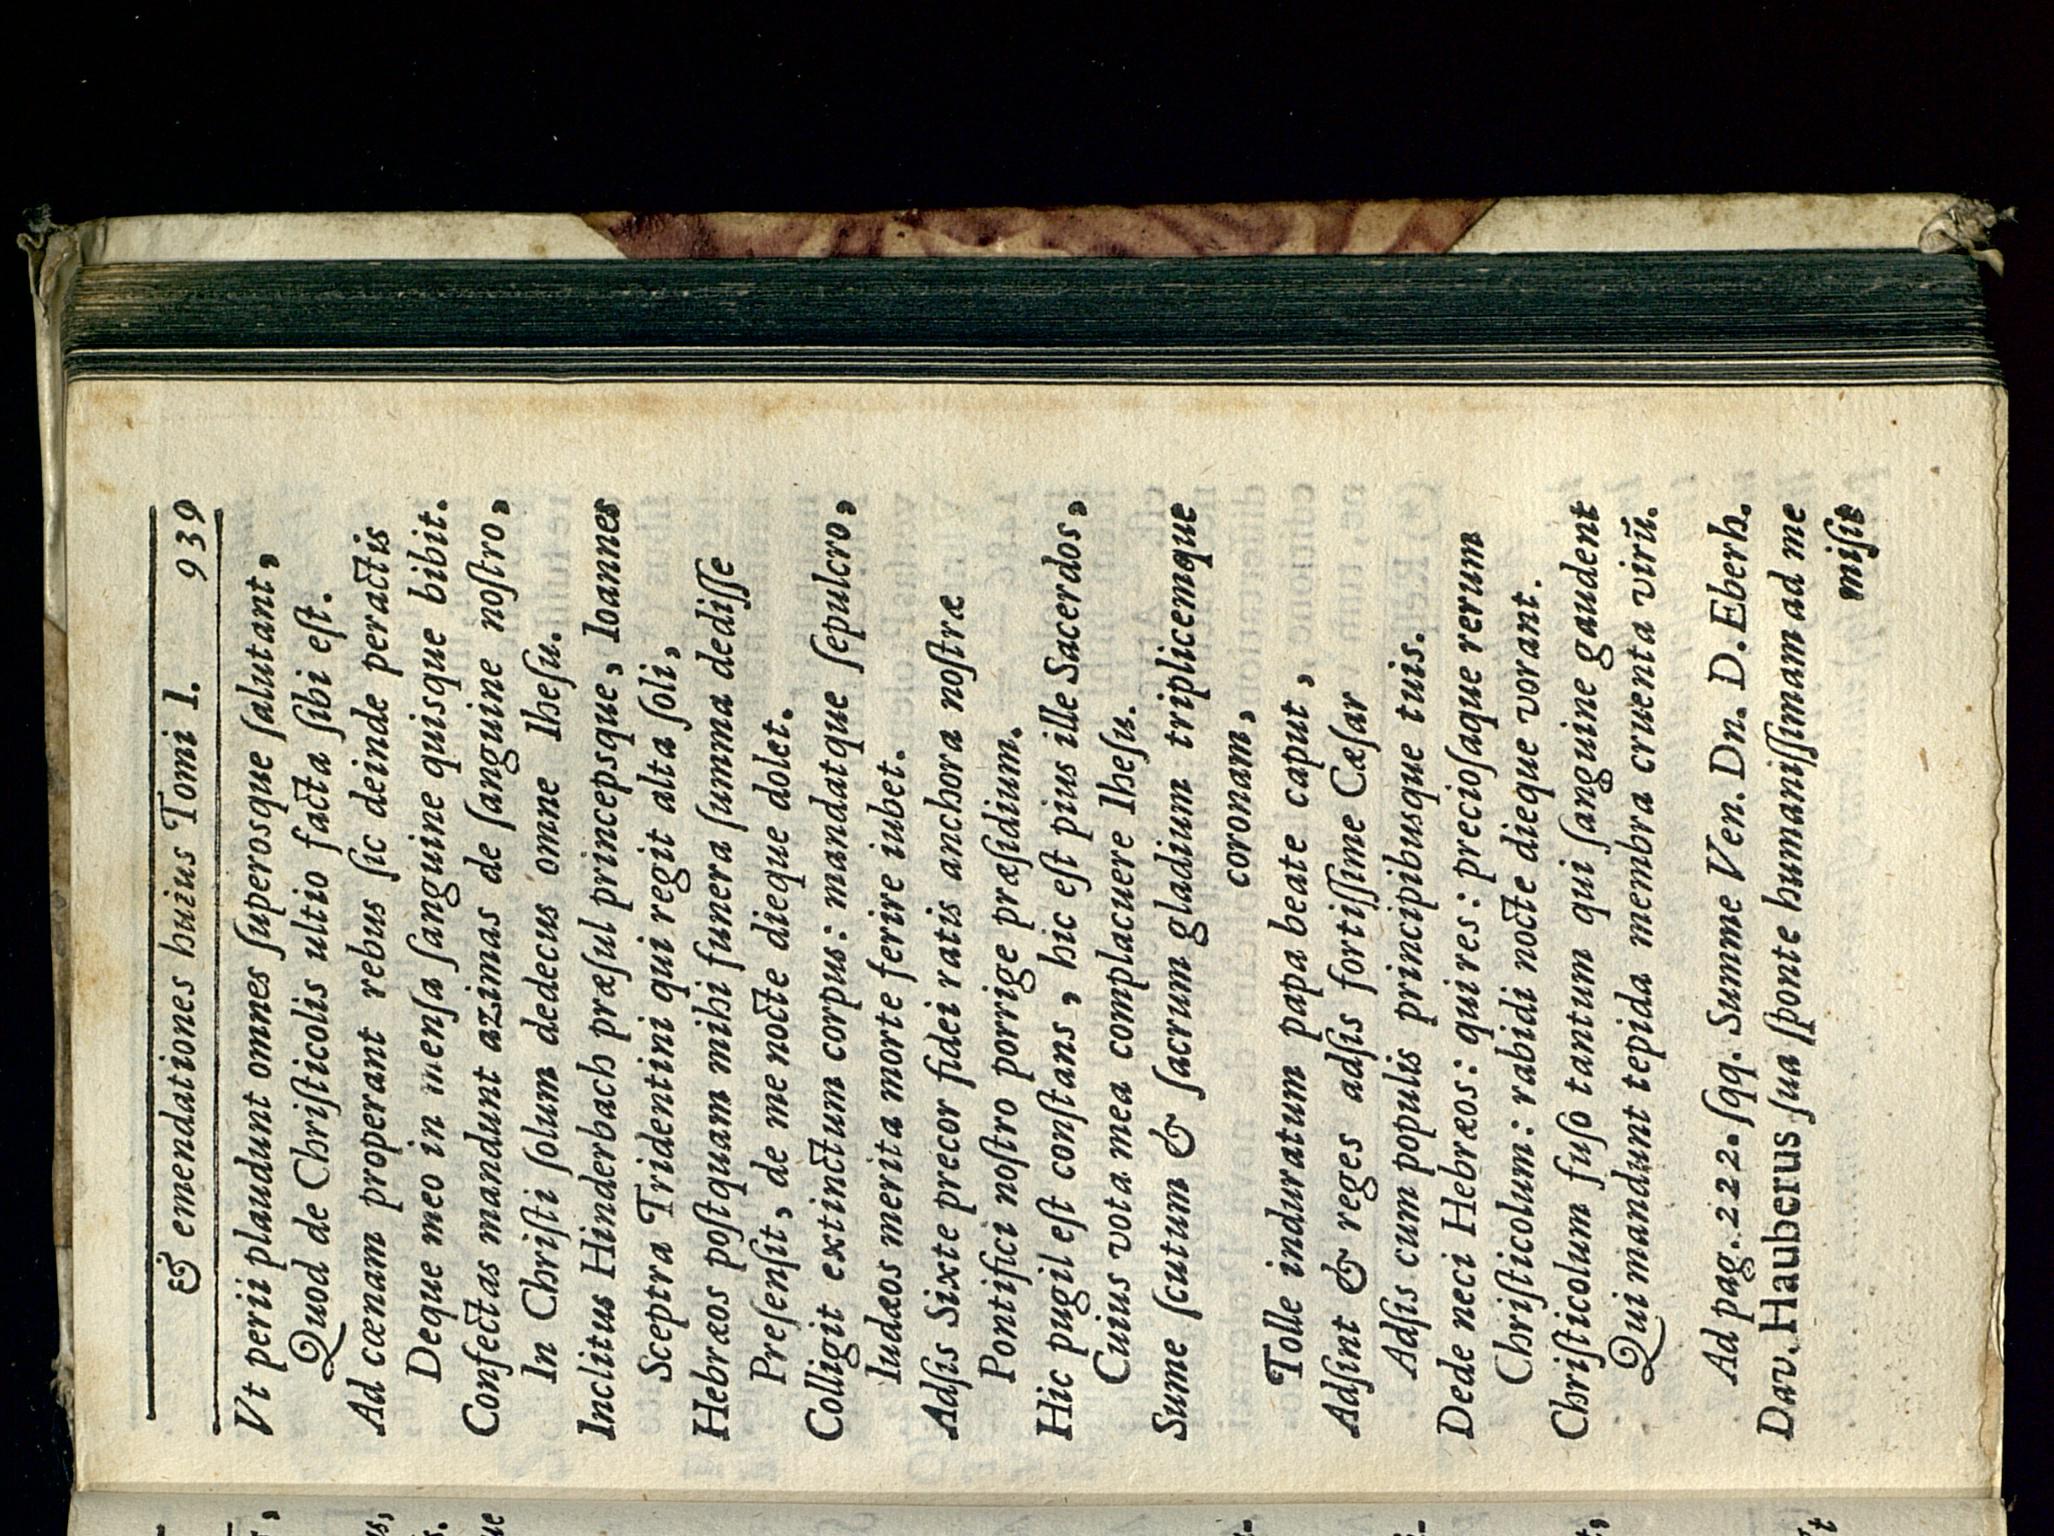 & emendationes huius Tomi I. 939
Vt perii plaudunt omnes ſuperosque ſalutant,
Quod de Chriſticolis ultio facta ſibi eſt.
Ad cænam properant rebus ſic deinde peractis
Deque meo in menſa ſanguine quisque bibit.
Confectas mandunt azimas de ſanguine noſtro,
In Chriſti ſolum dedecus omne Iheſu.
Inclitus Hinderbach præſul princepsque, Ioannes
Sceptra Tridentini qui regit alta ſoli,
Hebræos poſtquam mihi funera ſumma dediſſe
Preſenſit, de me nocte dieque dolet.
Colligit extinctum corpus: mandatque ſepulcro,
Iudæos merita morte ferire iubet.
Adſis Sixte precor fidei ratis anchora noſtræ
Pontifici noſtro porrige præſidium.
Hic pugil eſt conſtans, hic eſt pius ille Sacerdos,
Cuius vota mea complacuere Iheſu.
Sume ſcutum & ſacrum gladium triplicemque
coronam,
Tolle induratum papa beate caput,
Adſint & reges adſis fortiſſime Cæſar
Adſis cum populis principibusque tuis.
Dede neci Hebræos: qui res: precioſaque rerum
Chriſticolum: rabidi nocte dieque vorant.
Chriſticolum fuſo tantum qui ſanguine gaudent
Qui mandunt tepida membra cruenta virū.
Ad pag. 222. ſqq. Summe Ven. Dn. D. Eberh.
Dav. Hauberus ſua ſponte humaniſſimam ad me
miſit